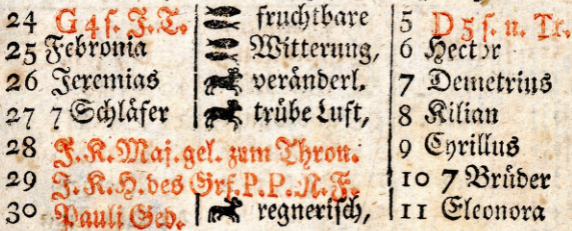 24 G 4 s. J. T. fruchtbare 5 D 5 s. n. Tr.
25 Febronia Witterung, 6 Hector
26 Jeremias veränderl. 7 Demetrius
27 7 Schläfer trübe Luft, 8 Kilian
28 J. K. Maj. gel. zum Thron. 9 Cyrillus
29 J. K. H. des Grf. P. P. N. F. 10 7 Brüder
30 Pauli Ged. regnerisch, 11 Eleonora